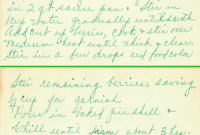 in 2 qt. sauce pan + Stir in
1 cup water gradually until smooth
Add cut up berries, cook + stir over
medium heat until thick + clear
Stir in a few drops red food color
Stir remaining berries, saving
1/4 cup for garnish
Pour in baked pie shell +
Chill until firm about 3 hrs.